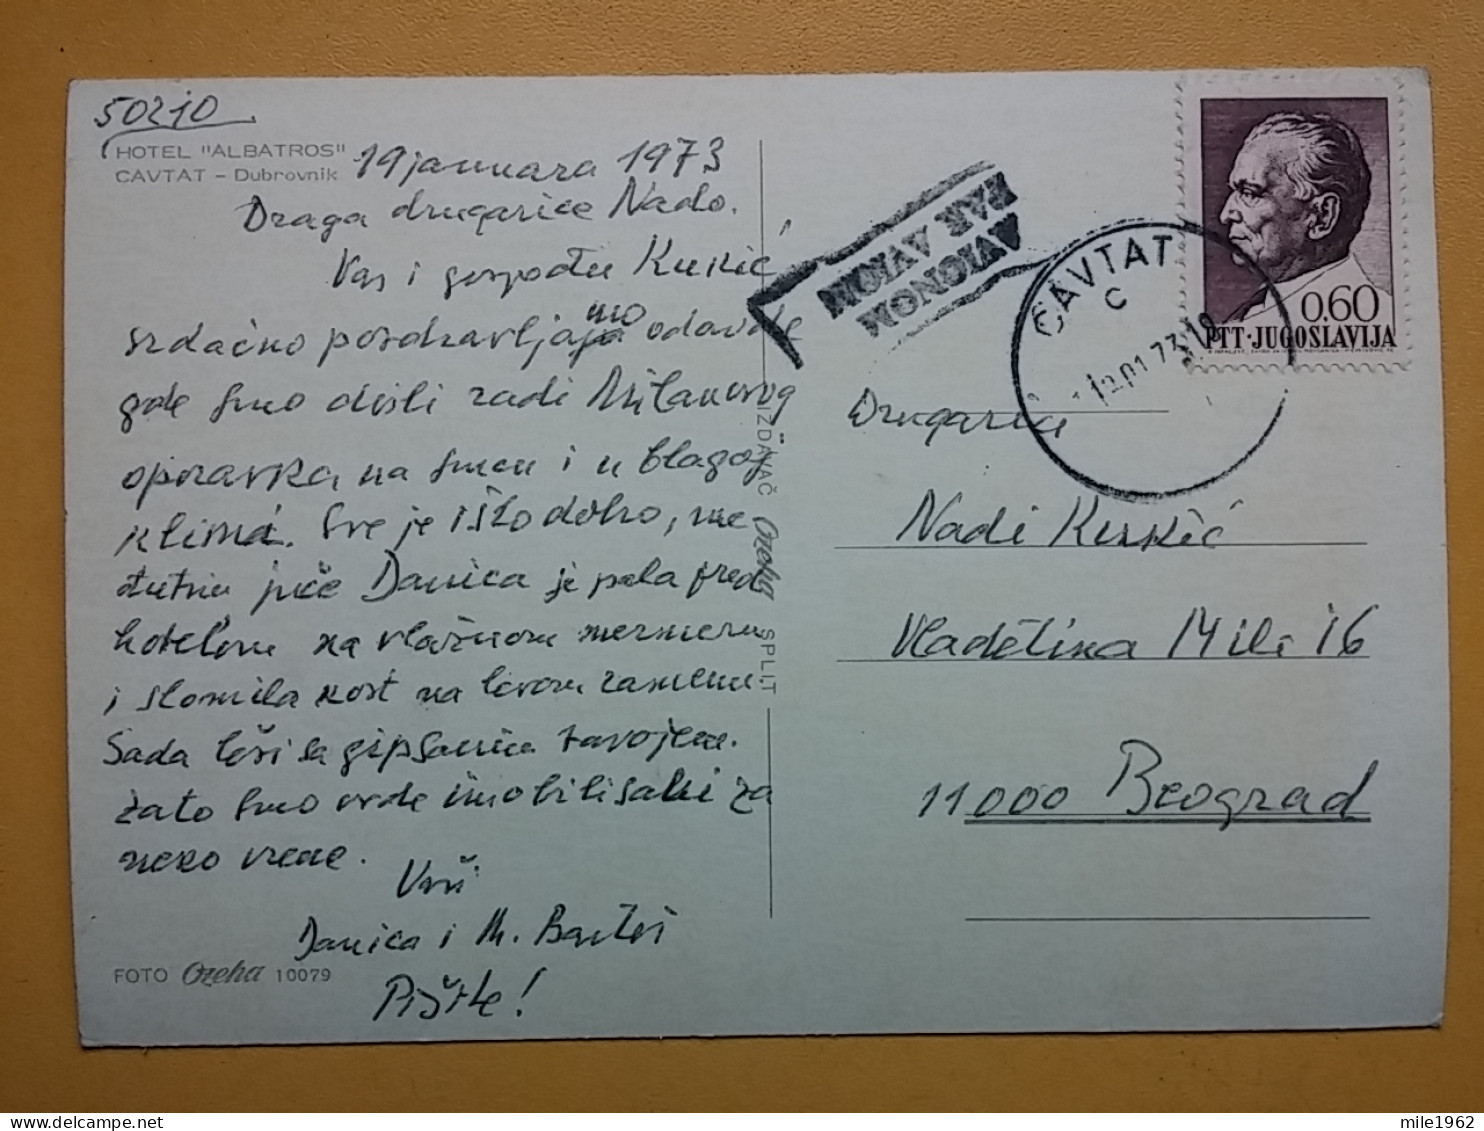 50210
HOTEL "ALBATROS"
CAVTAT - Dubrovnik
19 januara 1973
Draga drugarice Nado.
Vas i gospođu Kukić
srdačno pozdravljamo odavde
gde smo došli radi Milanovog
oporavka na suncu i u blagoj
klimi. Sve je išlo dobro, me
đutim juče Danica je pala pred
hotelom na vlažnom mermeru
i slomila kost na levom ramenu.
Sada leži sa gipsanim zavojem.
Zato smo ovde imobilisani za
neko vreme.
Vaši
Danica i M. Bartoš
Pišite!
FOTO Ozeha 10079
IZDAVAČ Ozeha SPLIT
AVIONOM
PAR AVION
CAVTAT
C
0.60
PTT·JUGOSLAVIJA
Drugarici
Nadi Kukić
Vladetina 14 ili 16
11000 Beograd
mile1962